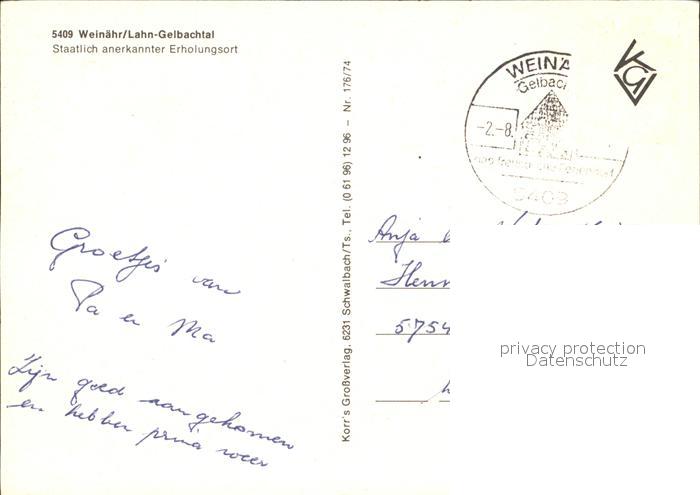 5409 Weinähr/Lahn-Gelbachtal
Staatlich anerkannter Erholungsort
Korr's Großverlag, 6231 Schwalbach/Ts., Tel. (0 61 96) 12 96 – Nr. 176/74
WEINÄ
Gelbac
-2.-8.
5409
Groetjes van
Pa en Ma
Zijn goed aangekomen
en hebben prima weer
Anja
Henr
5754
privacy protection
Datenschutz